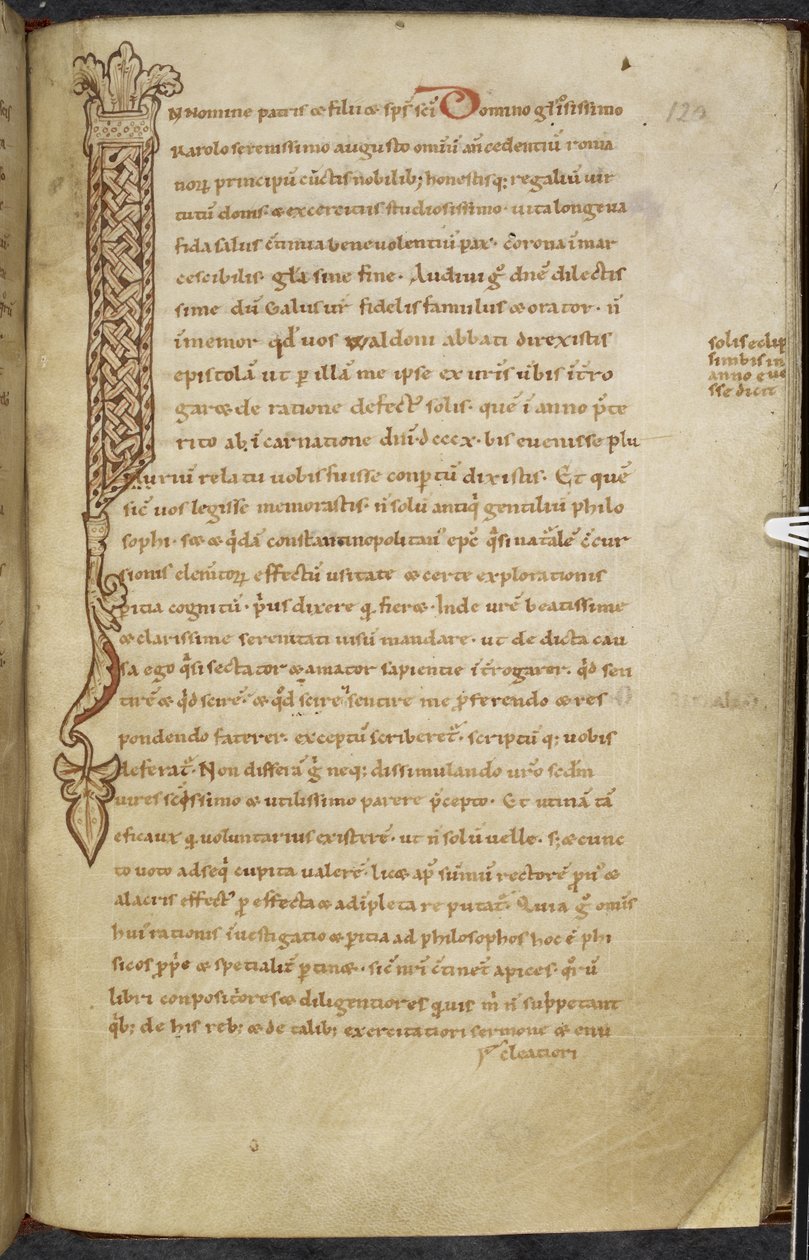 IN Nomine patris & filii & sp̄s sc̄i Domino gl̄osissimo
120
Karolo serenissimo augusto omniū ancedentiū roma
norꝝ principū cūctis nobilib; honestisq; regaliū uir
tutū donis & exercitiis studiosissimo. uita longeua
fida salus c̄tinua beneuolentiū pax. corona īmar
cescibilis. gl̄a sine fine. Audiui g̊ dn̄e dilectis
sime dū Galus ur̄ fidelis famulus & orator. n̄
īmemor qd̄ uos Waldoni abbati direxistis
epistolā ut ꝑ illā me ipse ex ur̄is ūbis īt̄ro
gar& de ratione defect᾽ solis. quē ī anno p̄te
rito ab ī carnatione dn̄i. dcccx. bis euenisse plu
solis eclip
simbis in
anno eue
sse dicit
riuriū relatu uobis fuisse conꝑtū dixistis. Et quē
sic̄ uos legisse memorastis. n̄ solū antiq̄ gentiliū philo
sophi. s& & q̄dā constantinopolitan᾽ ep̄c q̄si natāle c̄cur
sionis elem̄torꝝ effectū usitate & certe explorationis
ꝑitia cognitū. p̄us dixere q fier&. Inde ur̄e beatissime
& clarissime serenitati uisū mandare. ut de dicta cau
sa ego q̄si sectator & amator sapientie īt̄rogarer. qd̄ sen
tirē & qd̄ scirē. & qd̄ scire ł sentire me p̄ferendo & res
pondendo faterer. exceptū scriberet̄. scriptū q; uobis
deferat̄. Non differā ḡ neq; dissimulando ur̄o sc̄dm̄
uires sc̄issimo & utilissimo parere p̄cepto. Et utinā tā
efficaux q uoluntarius existerē. ut n̄ solū uelle. s; & cunc
to uoto adseq̄ cupita ualerē. lic& ap̄ sum̄ū rectorē p̄n᾽ &
alacris effect᾽ ꝓ effecta & adīpleta reputat̄. Quia g̊ om̄is
hui᾽ rationis īuestigatio & ꝑitia ad philosophos hoc ē phi
sicos ꝓp̄e & specialit̄ ꝑtin&. sic̄ nr̄i c̄tinet̄ apices. qrū
libri conpositōres & diligentiores quis m̄ n̄ subpetant
q̄b; de his reb; & de talib; exercitatiori sermone & enu
cleatiori